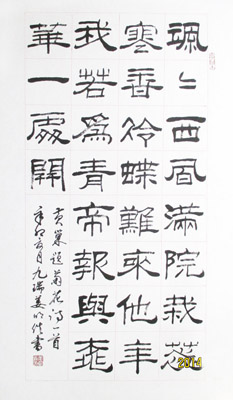 颯〻西風滿院栽蕊
寒香冷蝶難來他年
我若為青帝報與桃
華一處開
黃巢題菊花詩一首
辛卯月九瑞姜明書
2014